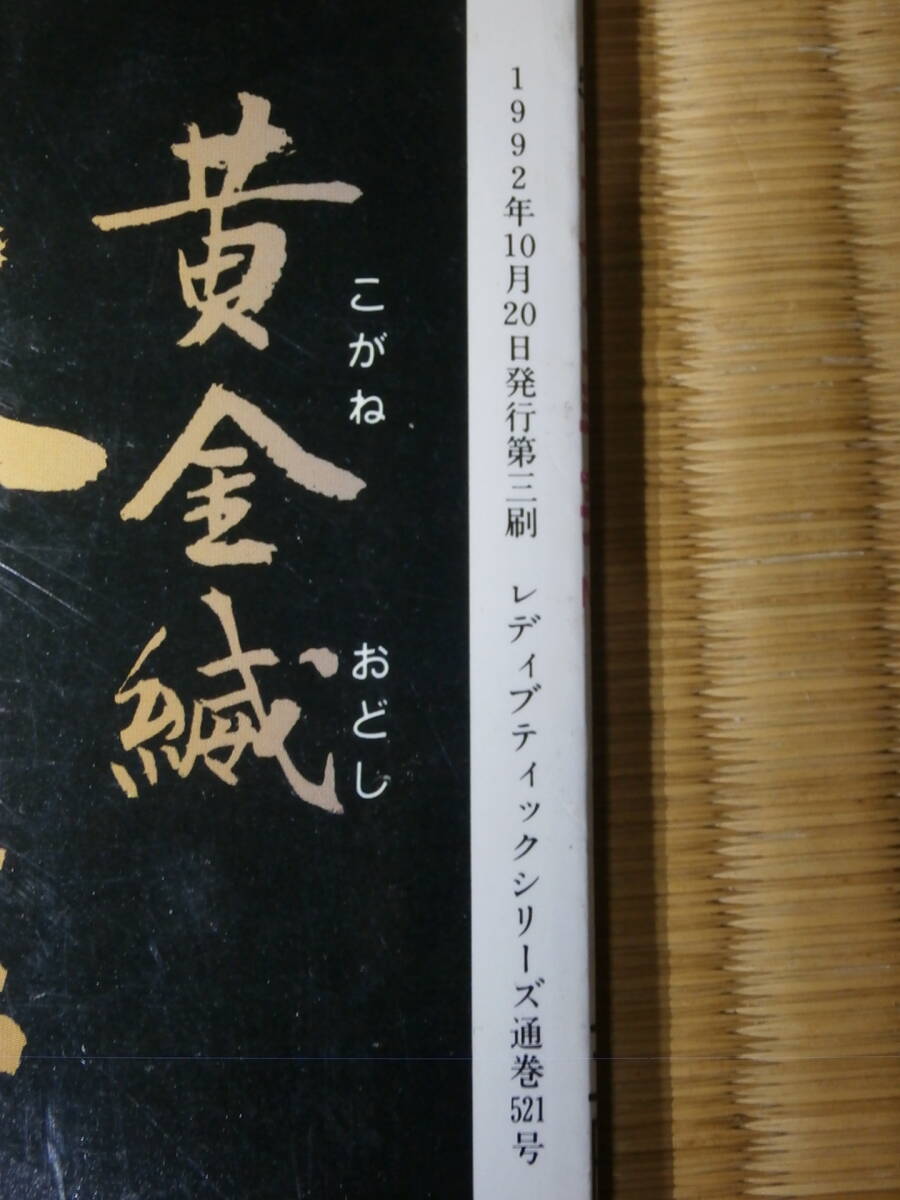 1992年10月20日発行第三刷 レディブティックシリーズ通巻521号
こがね おどし
黄金縅